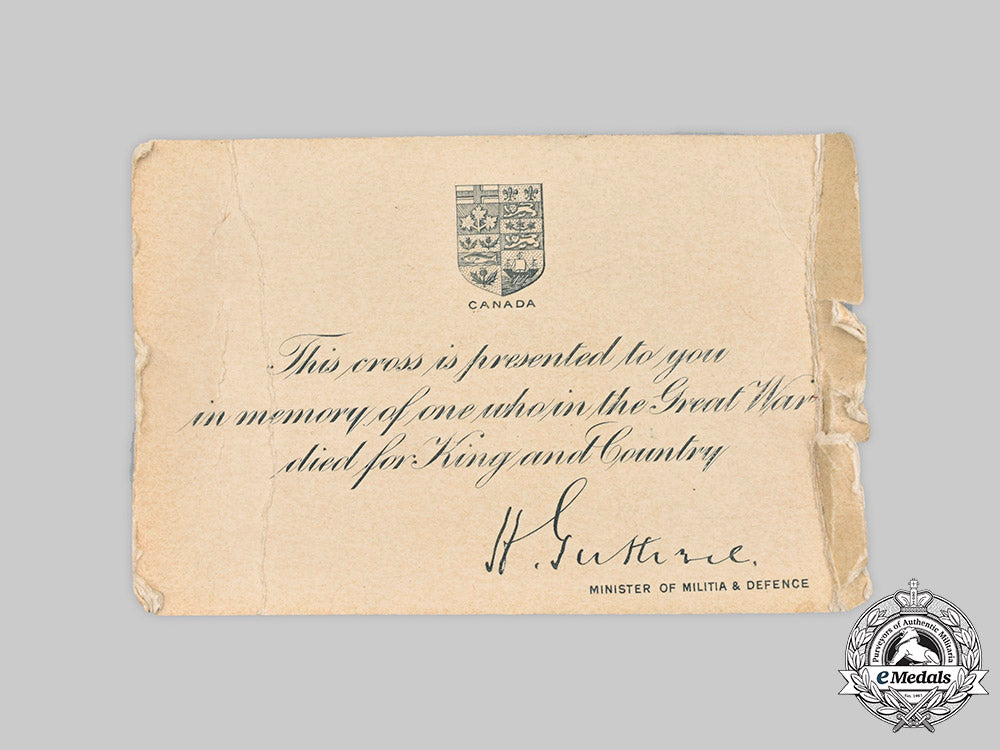 CANADA
This cross is presented to you
in memory of one who in the Great War
died for King and Country
H. Guthrie.
MINISTER OF MILITIA & DEFENCE
Purveyors of Authentic Militaria
eMedals